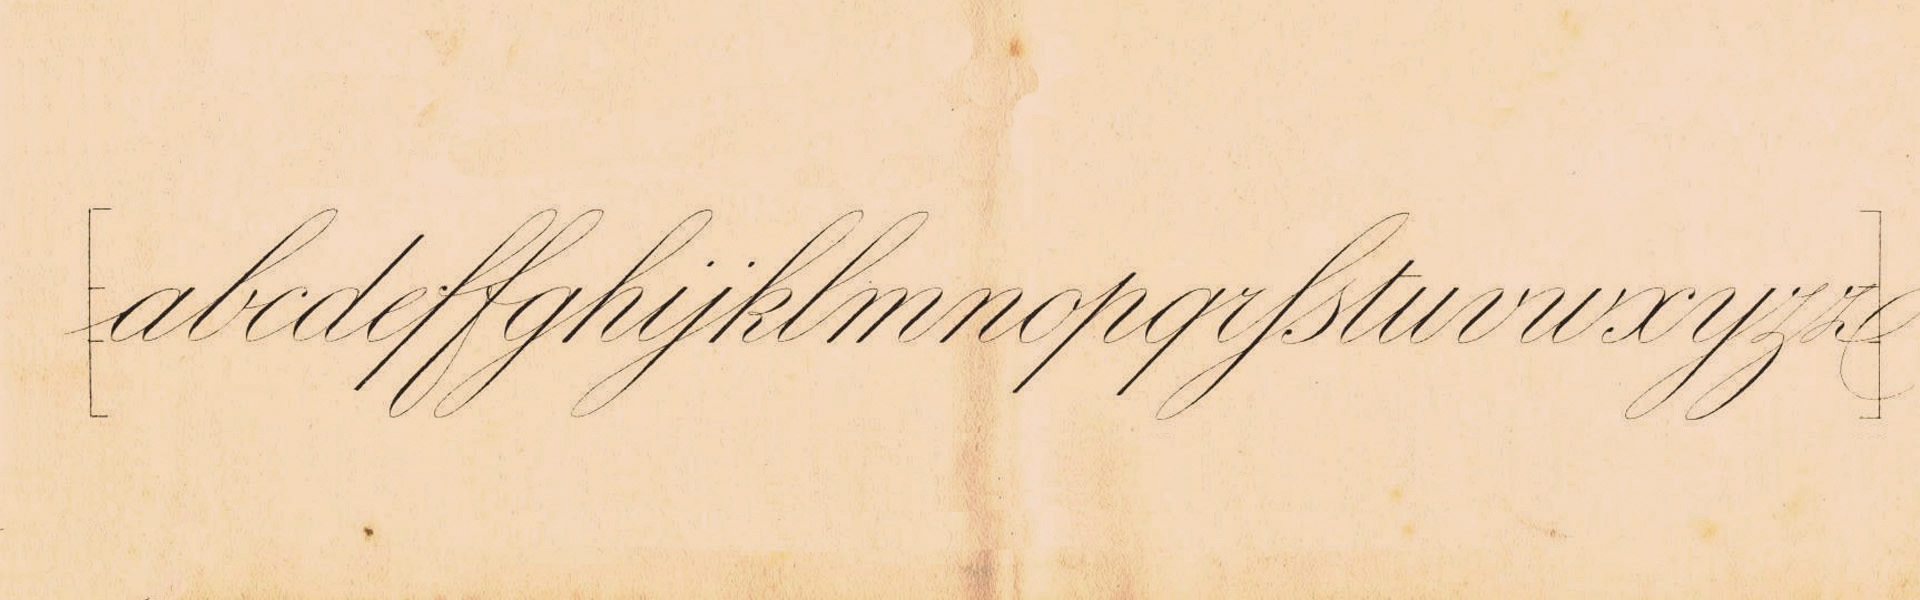 abcdefffghijklmnopqrſstuvwxyzz&